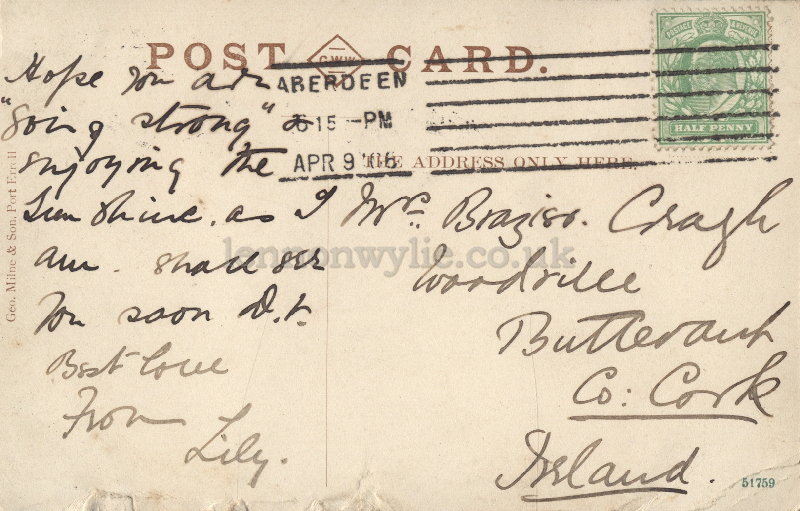 POST CARD.
G.W.W
ABERDEEN
6 15 - PM
APR 9 '06
HALF PENNY
THE ADDRESS ONLY HERE.
Hope you are
"Going strong" &
enjoying the
Sunshine. as I
am. shall see
you soon D.V.
Best love
From
Lily.
Mrs. Brazier. Creagh
Woodville
Buttevant
Co: Cork
Ireland.
Geo. Milne & Son, Port Erroll
lennonwylie.co.uk
51759